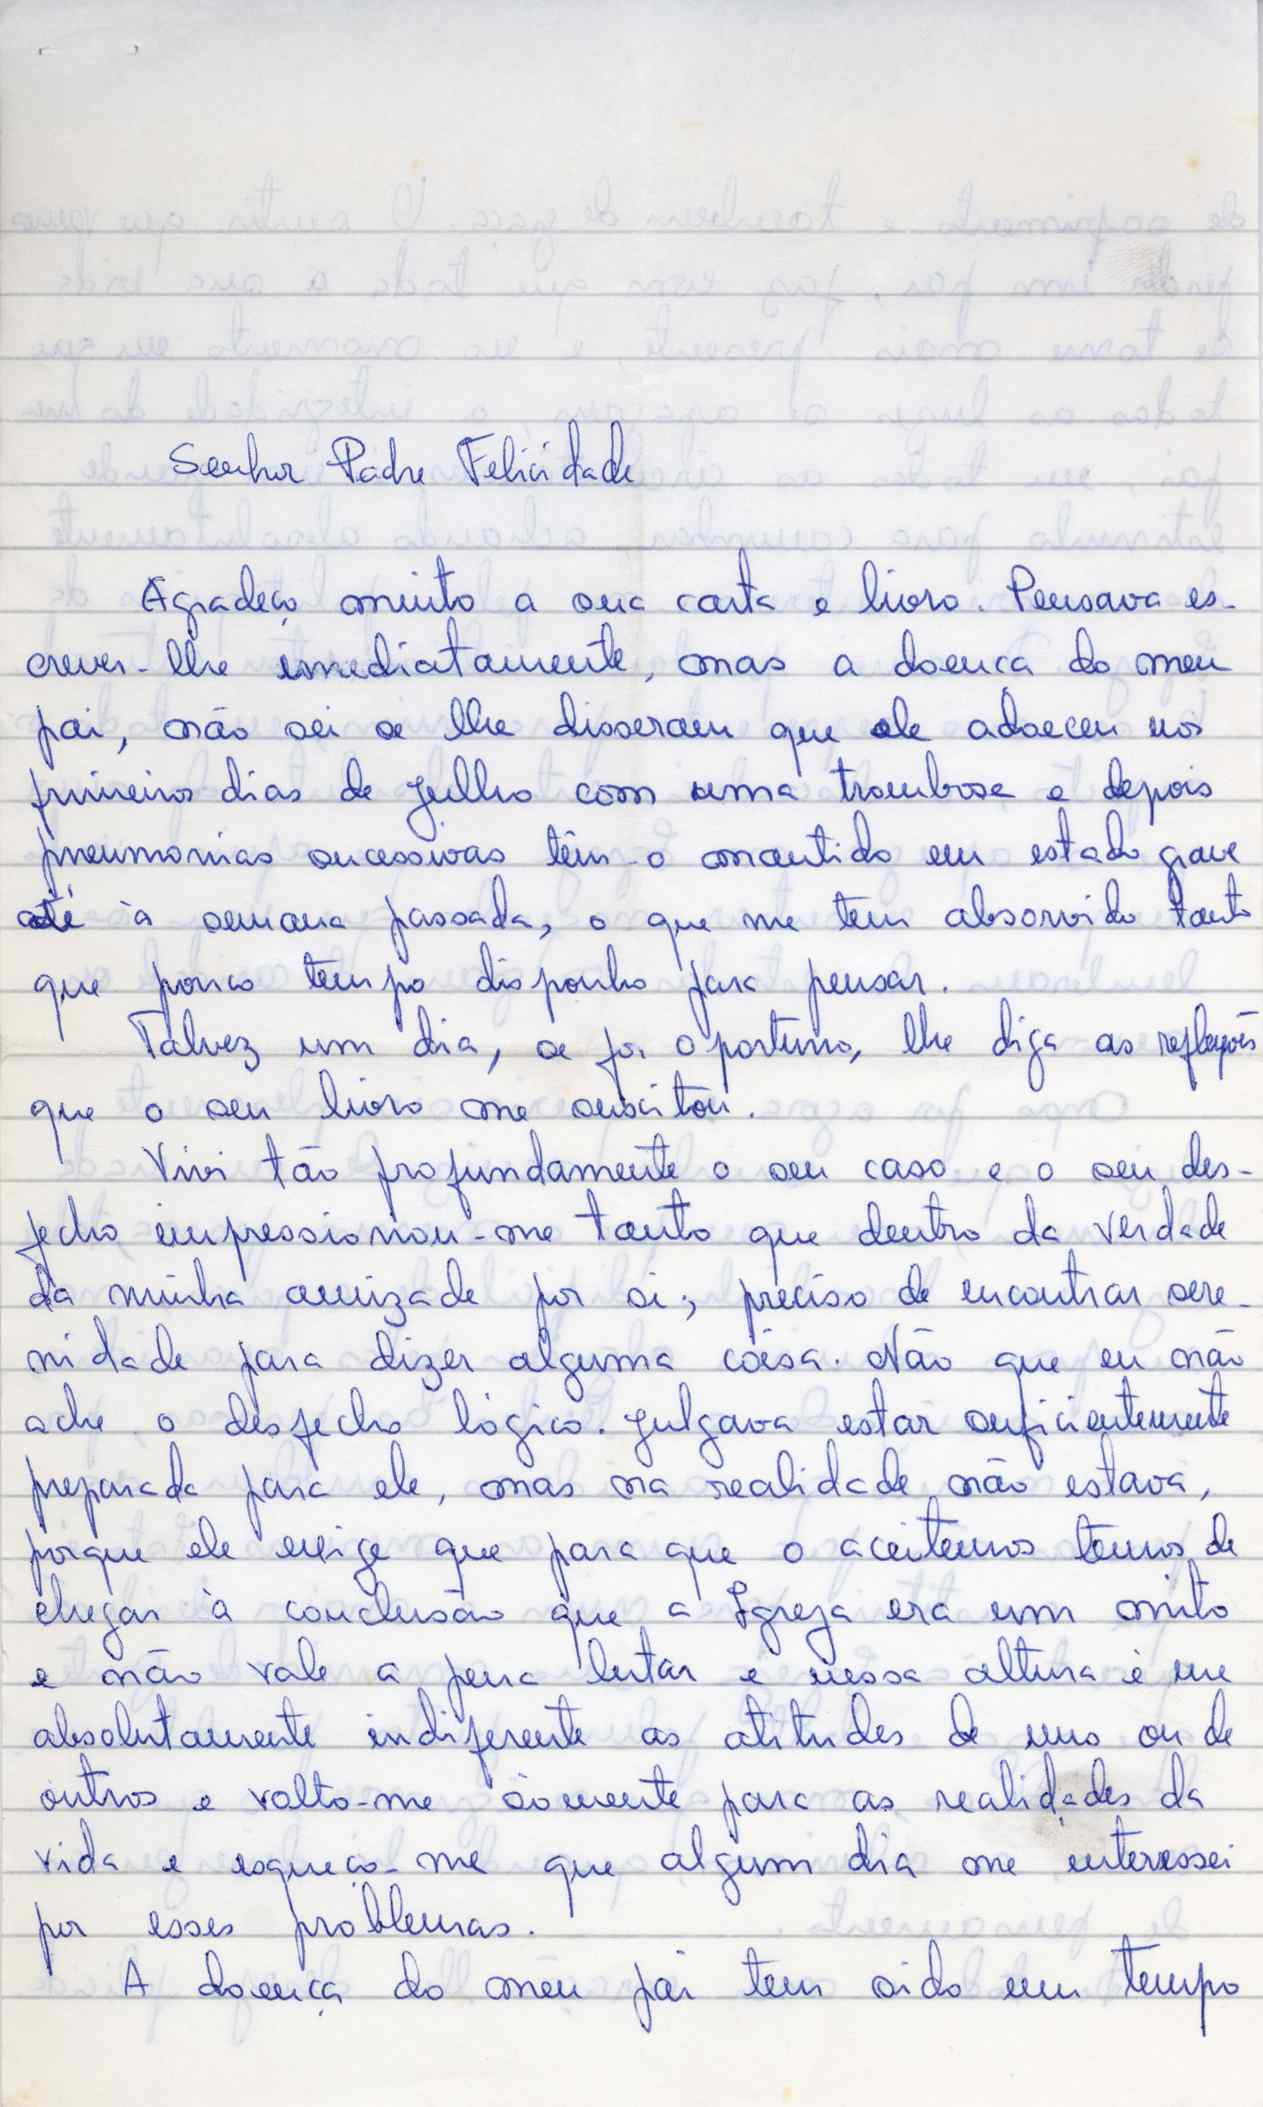 Senhor Padre Felicidade
Agradeço muito a sua carta e livro. Pensava es-
crever-lhe imediatamente, mas a doença do meu
pai, não sei se lhe disseram que ele adoeceu nos
primeiros dias de Julho com uma trombose e depois
pneumonias sucessivas têm-o mantido em estado grave
até à semana passada, o que me tem absorvido tanto
que pouco tempo disponho para pensar.
Talvez um dia, se for oportuno, lhe diga as reflexões
que o seu livro me suscitou.
Vivi tão profundamente o seu caso e o seu des-
fecho impressionou-me tanto que dentro da verdade
da minha amizade por si; preciso de encontrar sere-
nidade para dizer alguma coisa. Não que eu não
ache o desfecho lógico. Julgava estar suficientemente
preparada para ele, mas na realidade não estava,
porque ele exige que para que o aceitemos temos de
chegar à conclusão que a Igreja era um mito
e não vale a pena lutar e nessa altura é me
absolutamente indiferente as atitudes de uns ou de
outros e volto-me sòmente para as realidades da
vida e esqueço-me que algum dia me interessei
por esses problemas.
A doença do meu pai tem sido um tempo